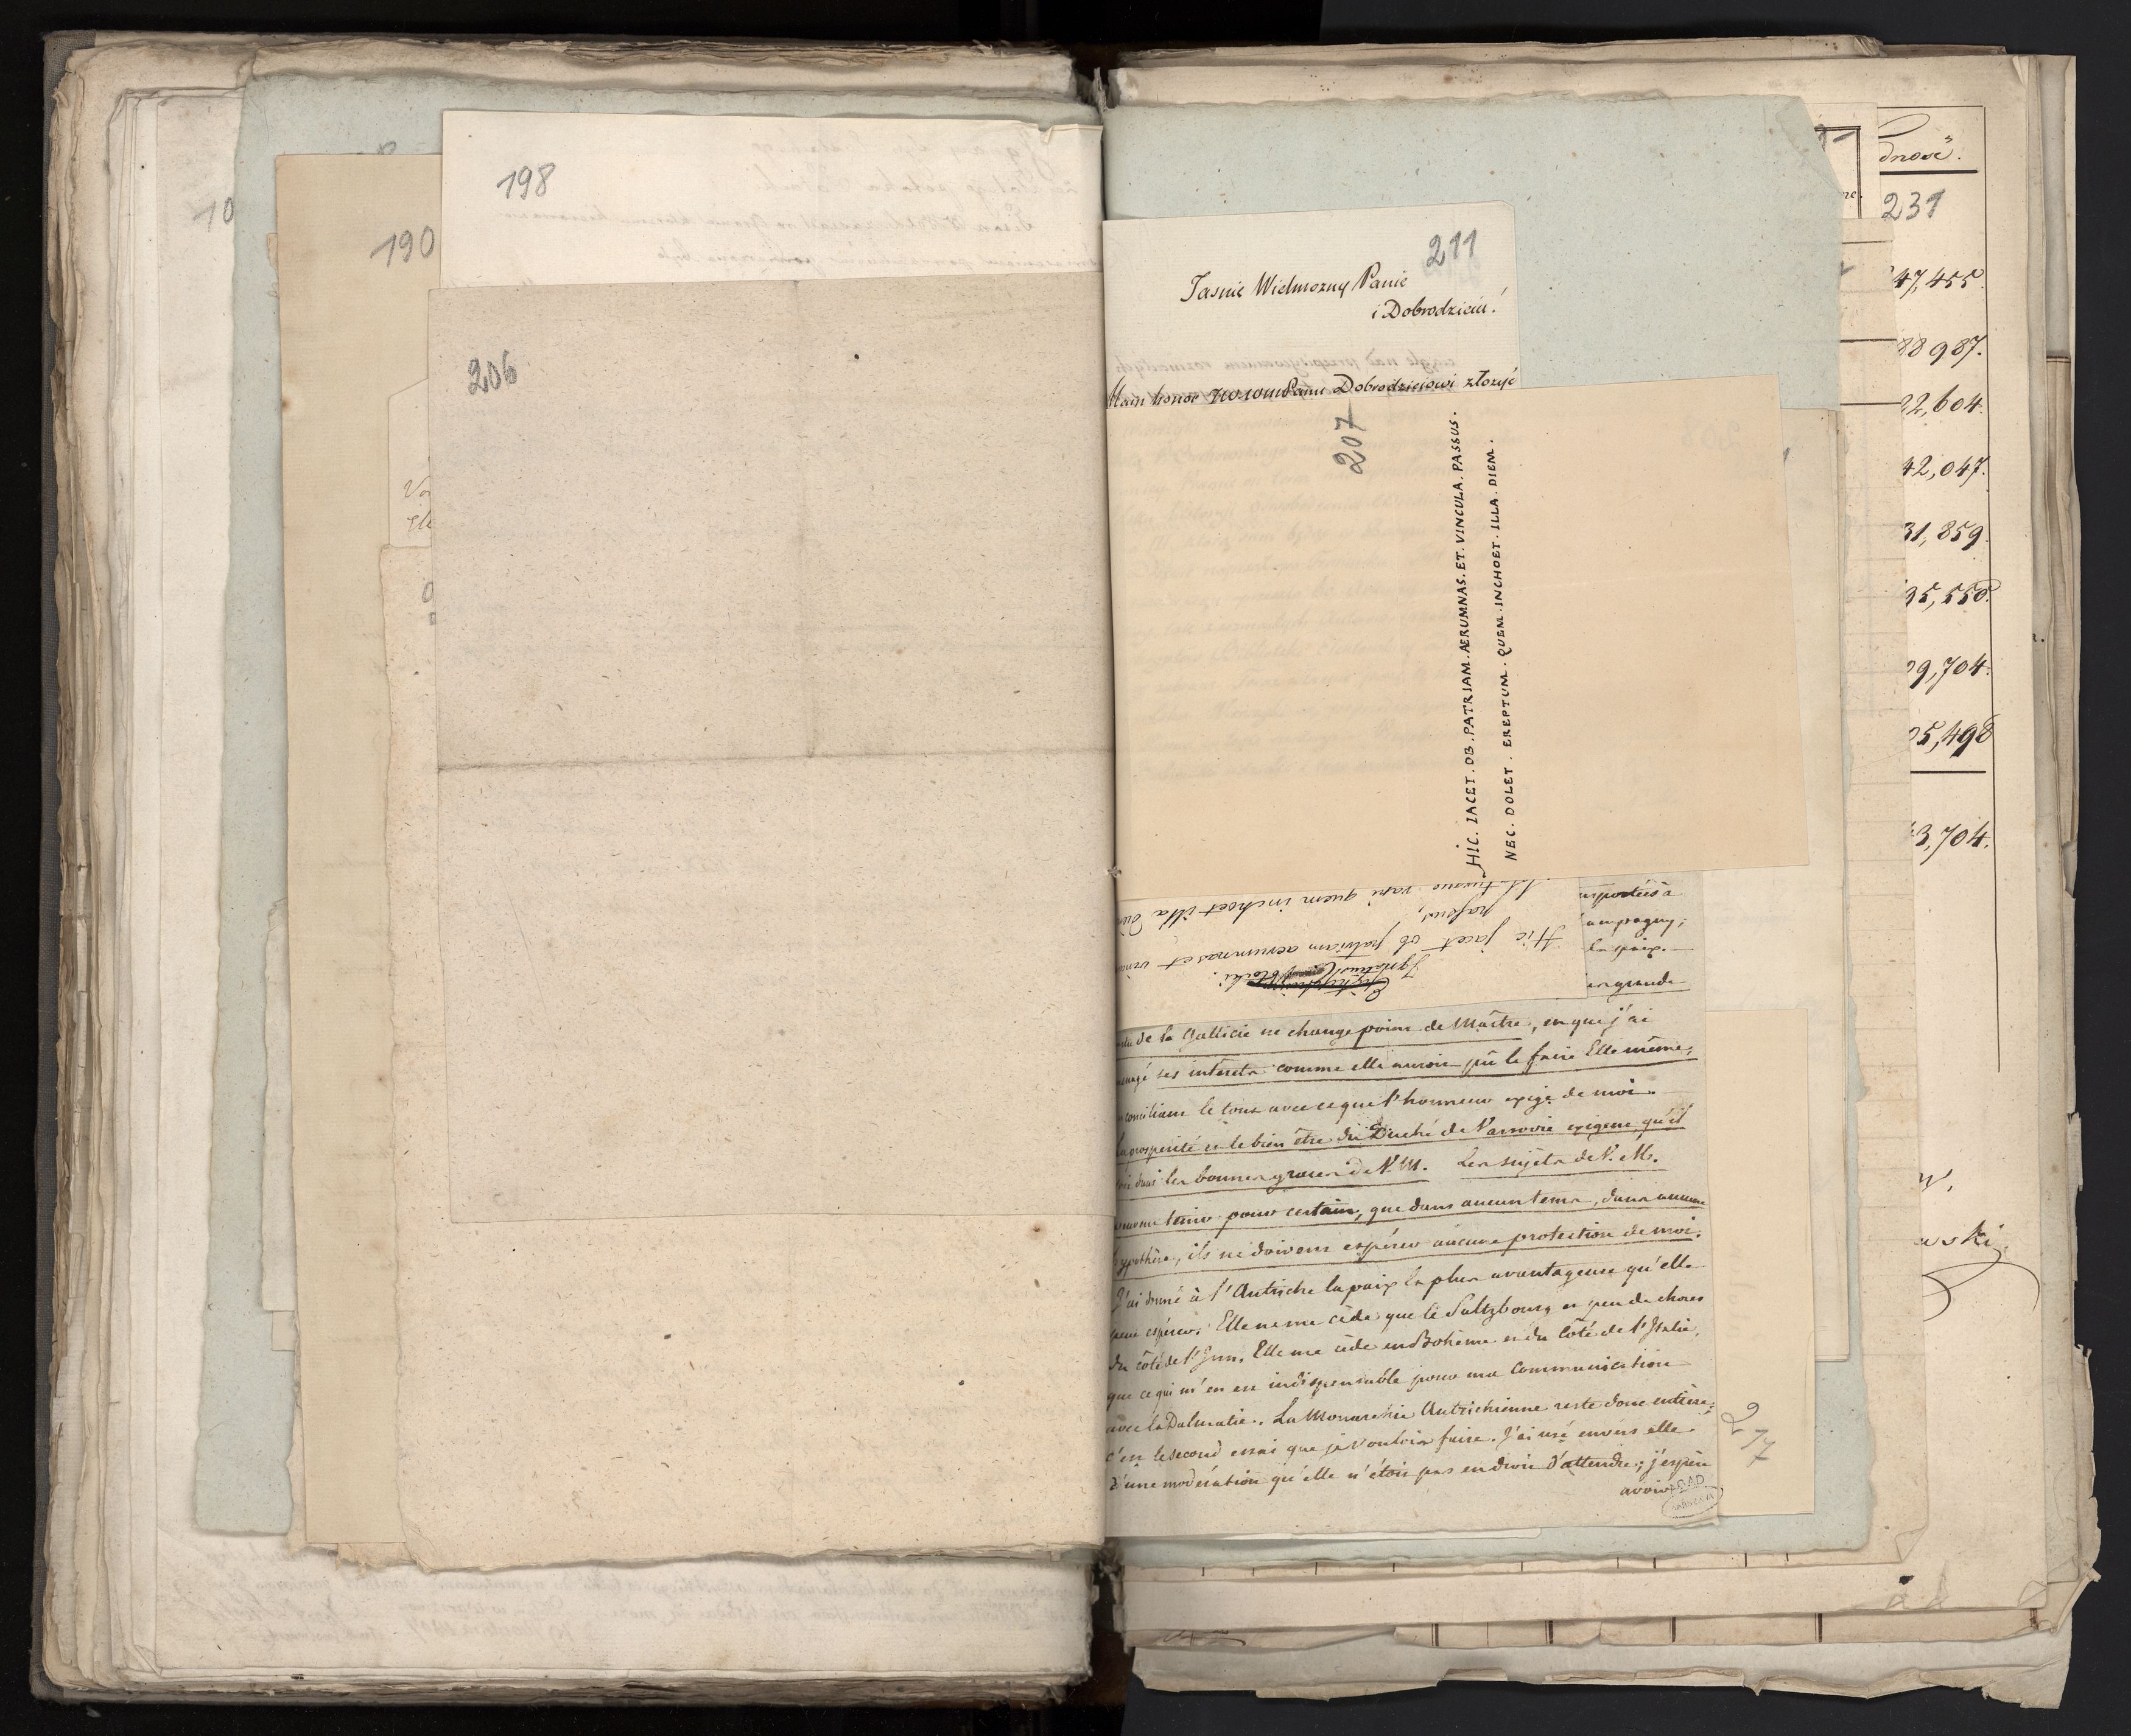 10
190
198
206
211
Jasnie Wielmozny Panie
i Dobrodzieiu!
Mam honor Panu Dobrodzieiowi złożyć
207
HIC. IACET. OB. PATRIAM. AERUMNAS. ET. VINCULA. PASSUS.
NEC. DOLET. EREPTUM. QUEM. INCHOET. ILLA. DIEM.
Ignatius
Hic jacet ob patriam aerumnas et
passus,
rapi quem inchoet illa
la paix.
de la Gallicie ne change point de Maître, en que j'ai
ses intérets comme elle auroit pû le faire Elle même,
conciliant le tout avec ce que l'honneur exige de moi.
La prosperité et le bien être du Duché de Varsovie exigent qu'il
dans les bonnes graces de V. M. Les sujets de V. M.
tenir pour certain, que dans aucun tems, dans aucune
hypothèse, ils ne doivent espérer aucune protection de moi.
J'ai donné à l'Autriche la paix la plus avantageuse qu'elle
put espérer. Elle ne me cède que le Saltzbourg et peu de choses
du côté de l'Inn. Elle me cède en Bohème et du côté de l'Italie,
que ce qui m'en est indispensable pour ma communication
avec la Dalmatie. La Monarchie Autrichienne reste donc entière;
c'est le second essai que je voulois faire. J'ai usé envers elle
d'une modération qu'elle n'étoit pas en droit d'attendre; j'espère
avoir
AGAD
217
dnosć.
231
47,455.
88987.
22,604.
42,047.
31,859.
95,550.
09,704.
05,498
3,704.
wski